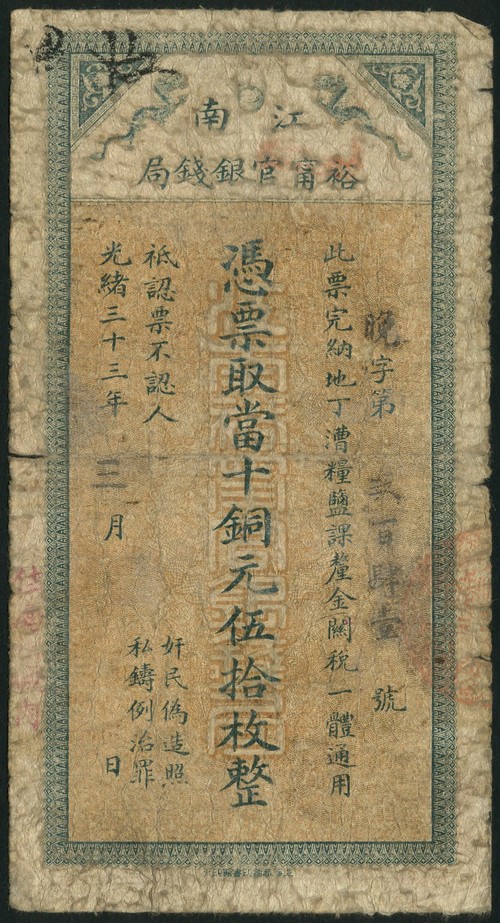 江南
裕甯官銀錢局
晚字第 百肆壹號
此票完納地丁漕糧鹽課釐金關稅一體通用
憑票取當十銅元伍拾枚整
祗認票不認人
光緒三十三年三月 日
奸民偽造照
私鑄例治罪